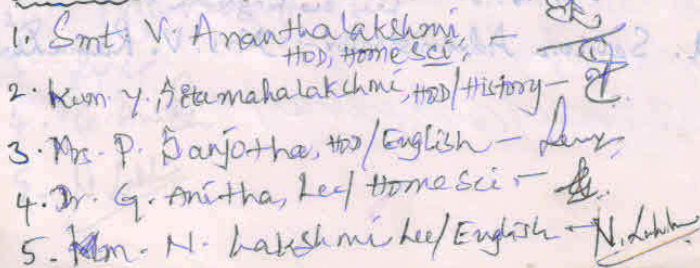 1. Smt. V. Ananthalakshmi, -
HOD, Home Sci,
2. Kum. Y. Seetamahalakshmi, HOD/History -
3. Mrs. P. Sanjotha, HOD/English -
4. Dr. G. Anitha, Lec/ Home Sci -
5. Km. N. Lakshmi Lec/ English - N. Lakshmi